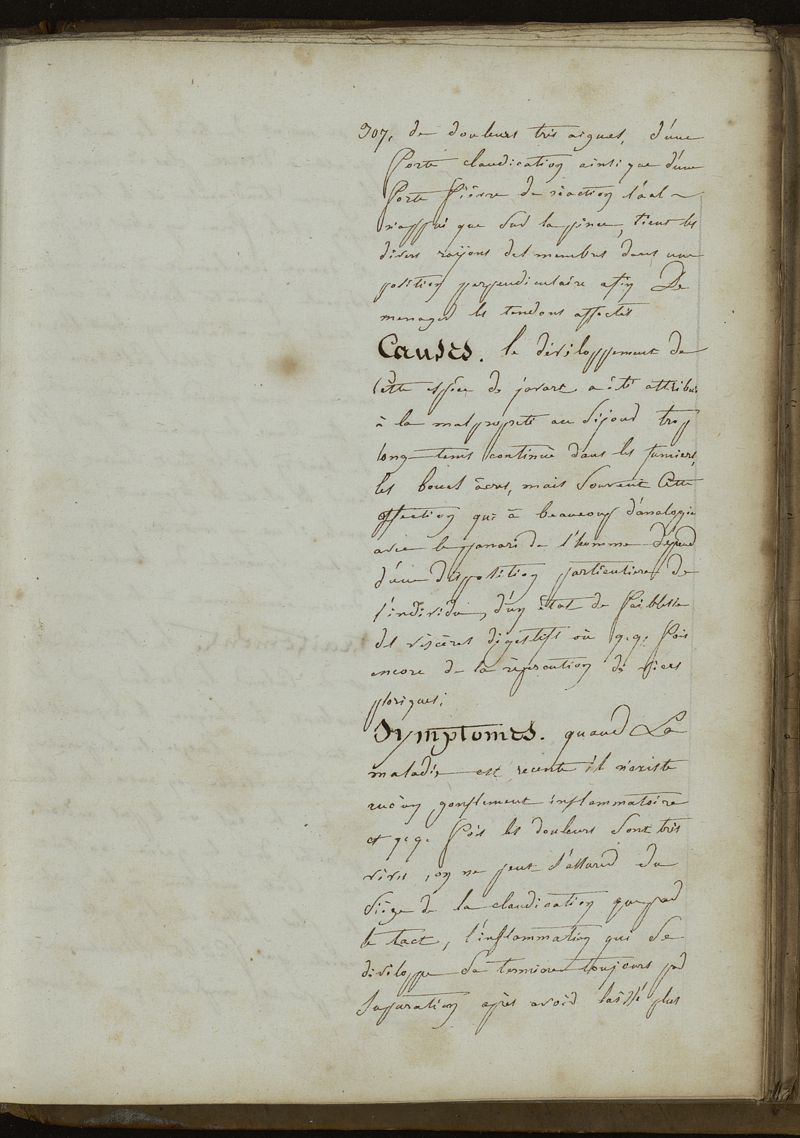 307, de douleurs très aigues, d'une
forte claudication ainsi que d'une
forte fièvre de réaction l'a al ~
n'appui que sur la pince, tient les
divers rayons des membres dans une
position perpendiculaire afin De
menager les tendons affectés
Causes. le développement de
Cette espèce de javart a été attribué
à la malpropreté au séjour trop
long-tems continué dans les fumiers,
les boues âcres, mais souvent Cette
affection qui à beaucoup d'analogie
avec le panaris de l'homme dépend
d'une disposition particuliere de
l'individu, d'un état de faiblesse
des viscères digestifs où q.q. fois
encore de la répercution de
psoriques;
Symptomes. quand La
maladie est recente il n'existe
aucun gonflement inflammatoire
et q.q. fois les douleurs sont très
vives, on ne peut s'assurer du
siège de la claudication que par
le tact, l'inflammation qui se
développe se termine toujours par
suppuration après avoir laissé plus